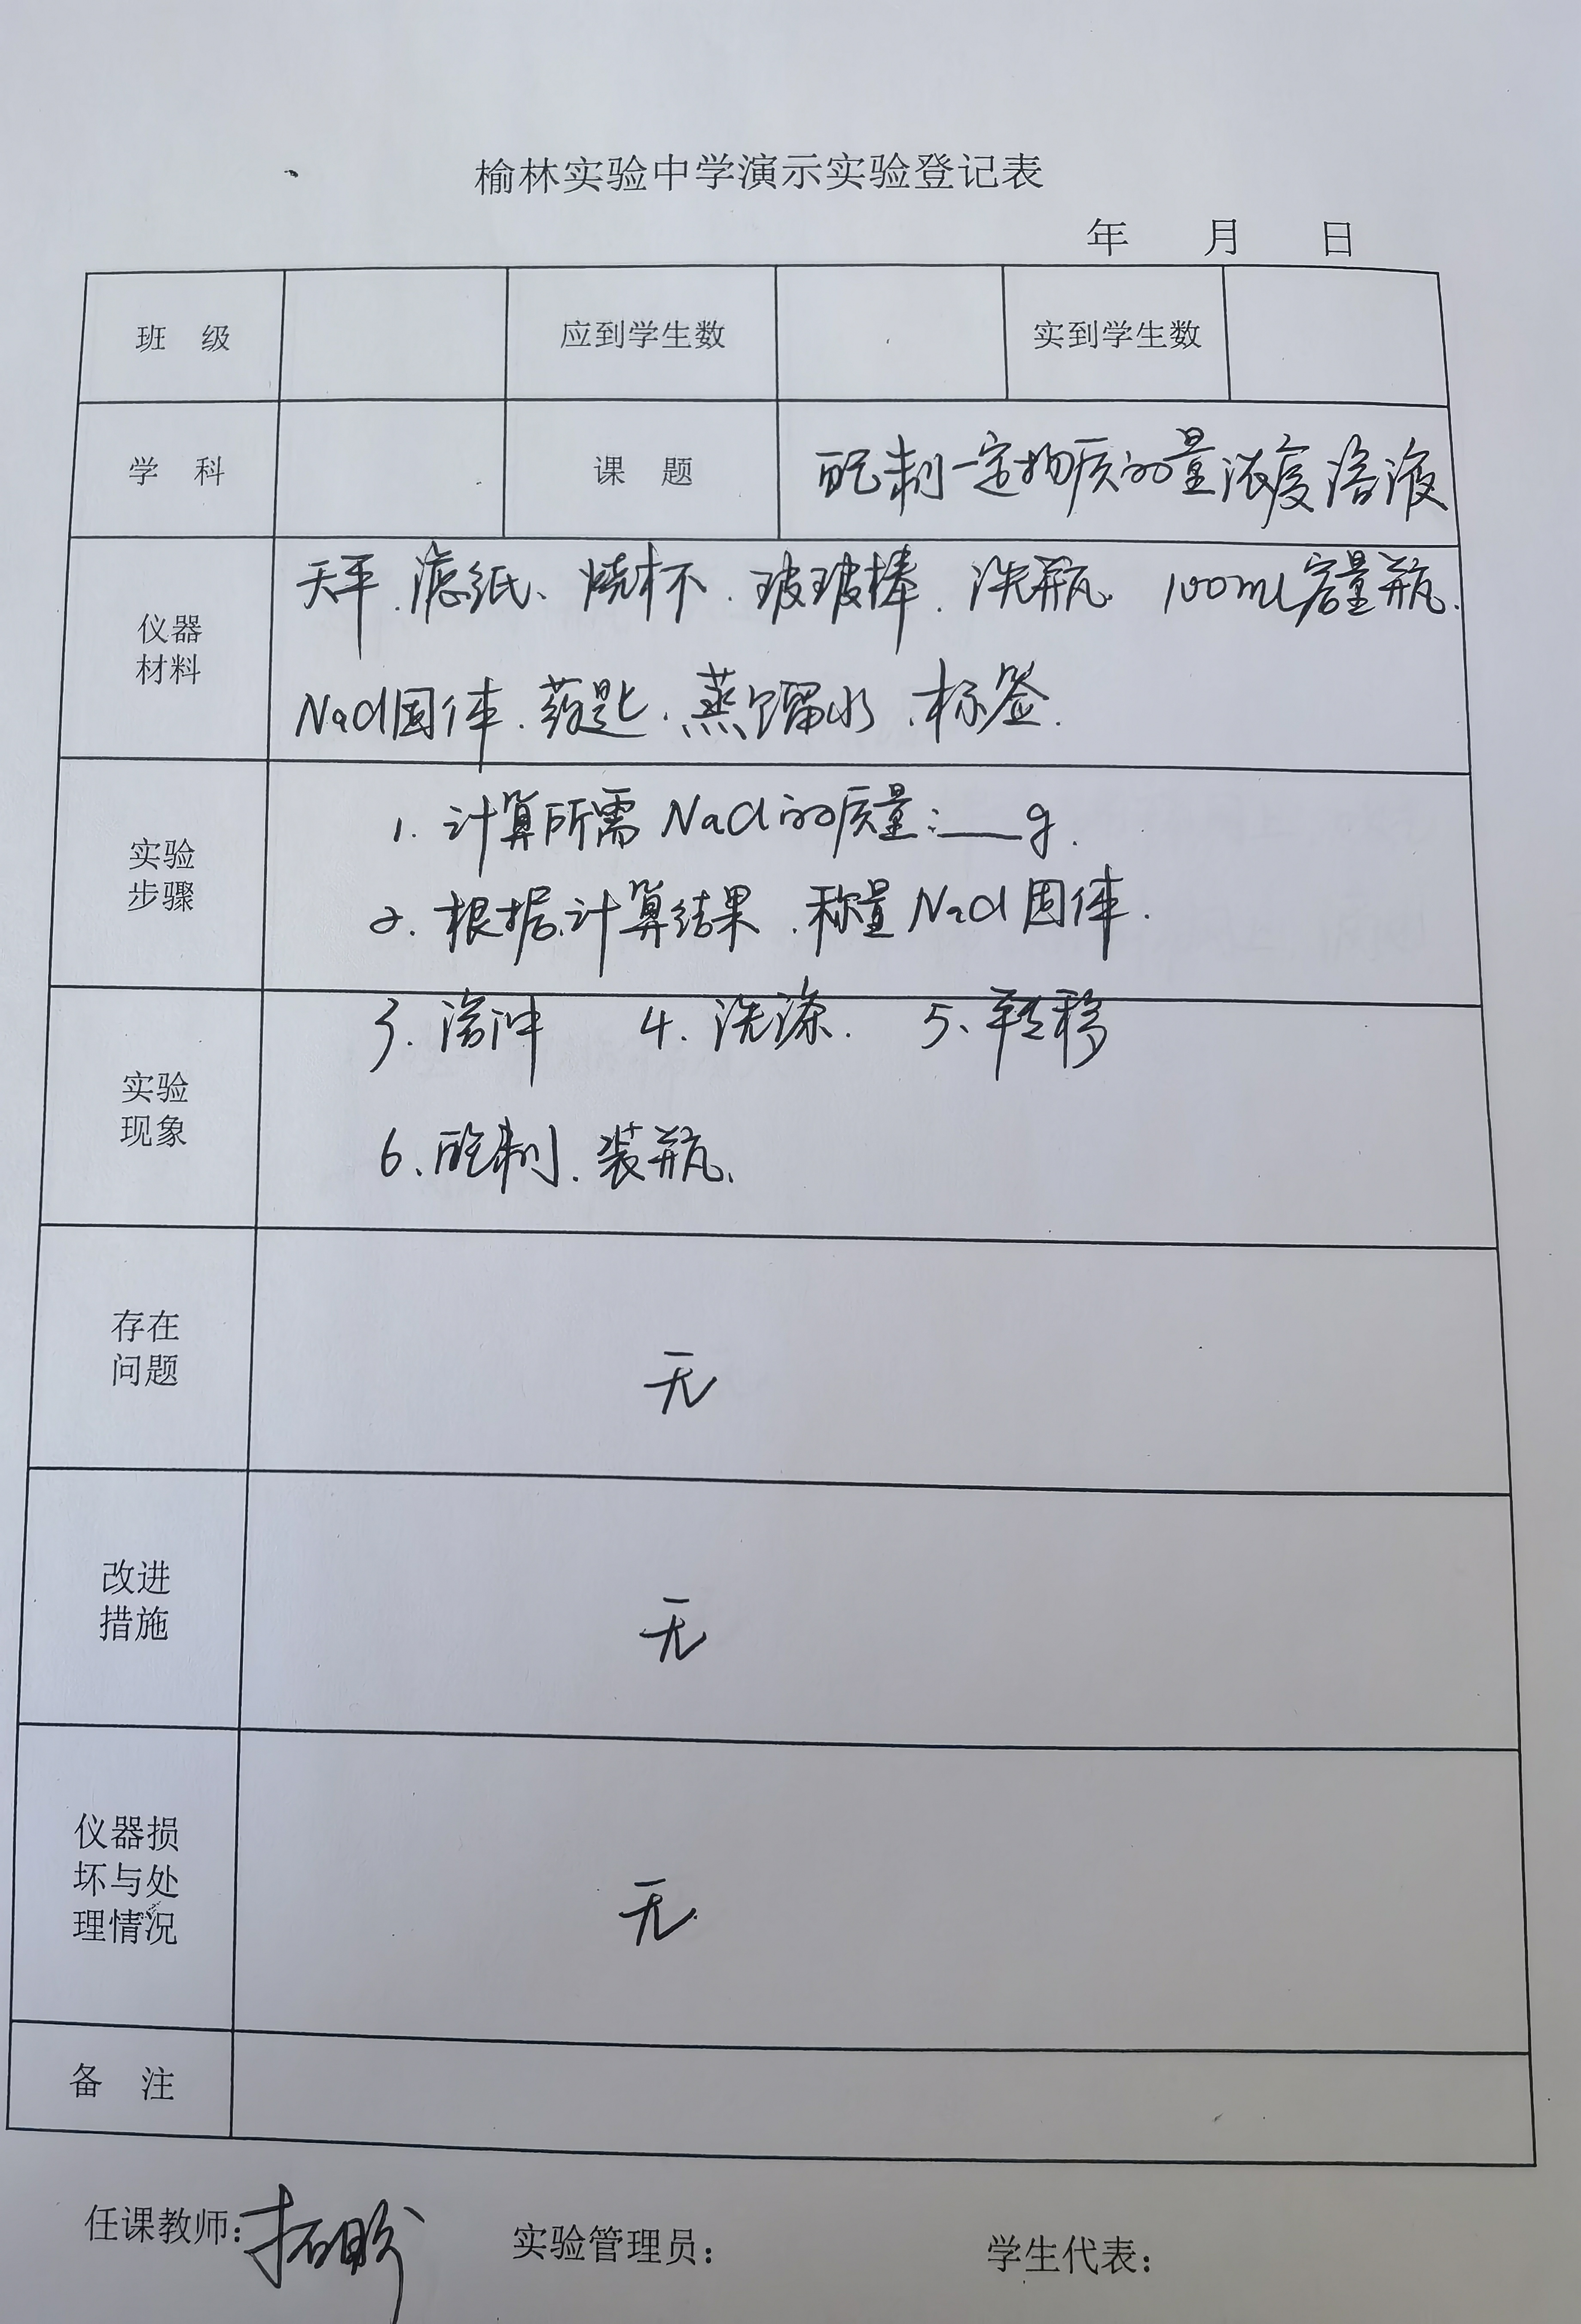 榆林实验中学演示实验登记表
年 月 日
班 级 应到学生数 实到学生数
学 科 课 题 配制一定物质的量浓度溶液
仪器
材料
天平、滤纸、烧杯、玻玻棒、洗瓶、100ml容量瓶、
NaCl固体、药匙、蒸馏水、标签.
实验
步骤
1. 计算所需NaCl的质量:___g.
2. 根据计算结果、称量NaCl固体.
实验
现象
3. 溶 4. 洗涤. 5、转移
6、配制、装瓶、
存在
问题
无
改进
措施
无
仪器损
坏与处
理情况
无
备 注
任课教师: 实验管理员: 学生代表: